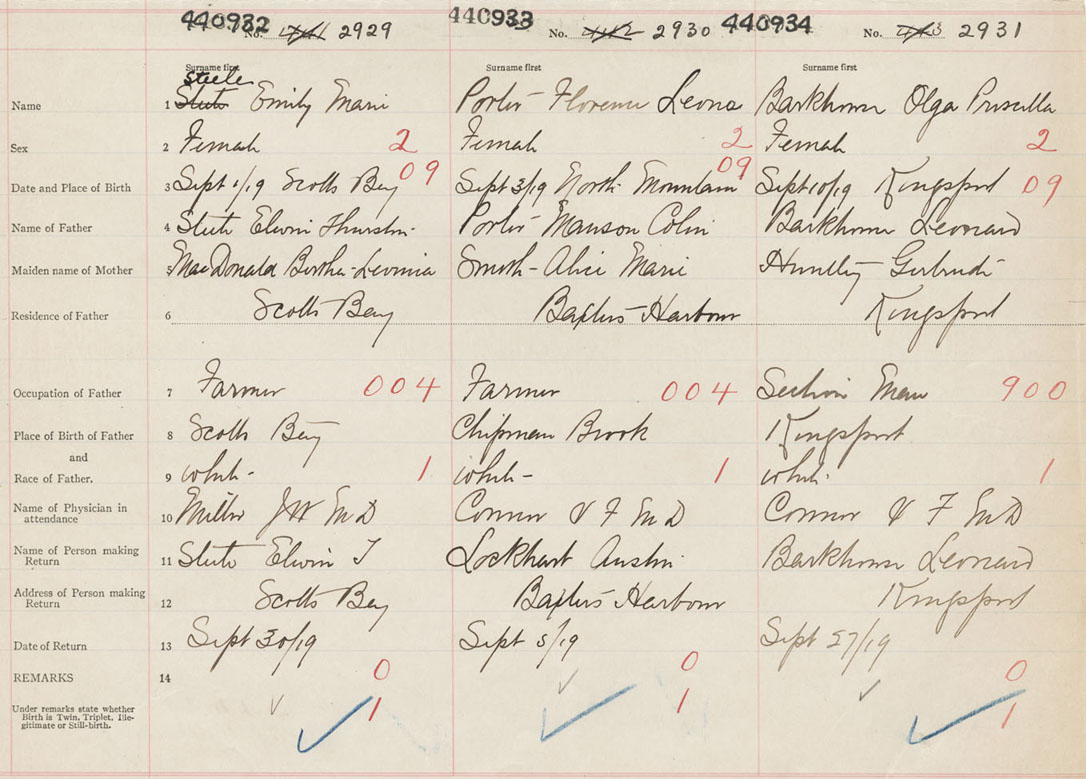 440932 440933 440934
No. 2929 No. 2930 No. 2931
Surname first Surname first Surname first
Steele
Name 1 Steets Emily Marie Porter Florence Leona Barkhouse Olga Priscilla
Sex 2 Female 2 Female 2 Female 2
Date and Place of Birth 3 Sept 1/19 Scotts Bay 09 Sept 3/19 North Mountain 09 Sept 10/19 Kingsport 09
Name of Father 4 Elwin Porter Manson Colin Barkhouse Leonard
Maiden name of Mother 5 MacDonald Bertha Smith - Alice Marie Huntley Gertrude
Residence of Father 6 Scotts Bay Baxters Harbour Kingsport
Occupation of Father 7 Farmer 004 Farmer 004 Section Man 900
Place of Birth of Father 8 Scotts Bay Chipman Brook Kingsport
and
Race of Father. 9 white - 1 white - 1 white. 1
Name of Physician in
attendance 10 Miller JW M D Connor F M D Connor F M D
Name of Person making
Return 11 Elwin T Lockhart Austin Barkhouse Leonard
Address of Person making
Return 12 Scotts Bay Baxters Harbour Kingsport
Date of Return 13 Sept 30/19 Sept 5/19 Sept 27/19
REMARKS 14 0 0 0
Under remarks state whether
Birth is Twin, Triplet, Ille-
gitimate or Still-birth. 1 1 1